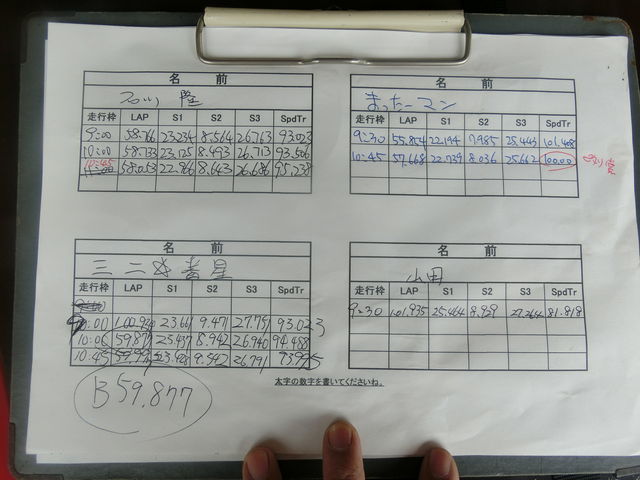 名 前
石川 隆
走行枠 LAP S1 S2 S3 SpdTr
9:00 58.766 23.234 8.564 26.763 93.023
10:00 58.733 23.125 8.493 26.713 93.506
10:45 58.053 22.766 8.643 26.686 95.238
名 前
まったーマン
走行枠 LAP S1 S2 S3 SpdTr
9:30 55.854 22.194 7.985 25.445 101.408
10:45 57.668 22.739 8.036 25.662 100.00
賞
名 前
三二 星
走行枠 LAP S1 S2 S3 SpdTr
9:00 1:00.930 23.661 9.471 27.751 93.023
10:00 59.877 23.437 8.942 26.940 94.488
10:45 9.342 26.791
名 前
山田
走行枠 LAP S1 S2 S3 SpdTr
9:30 1:01.935 25.464 8.929 27.264 81.818
太字の数字を書いてくださいね。
B 59.877